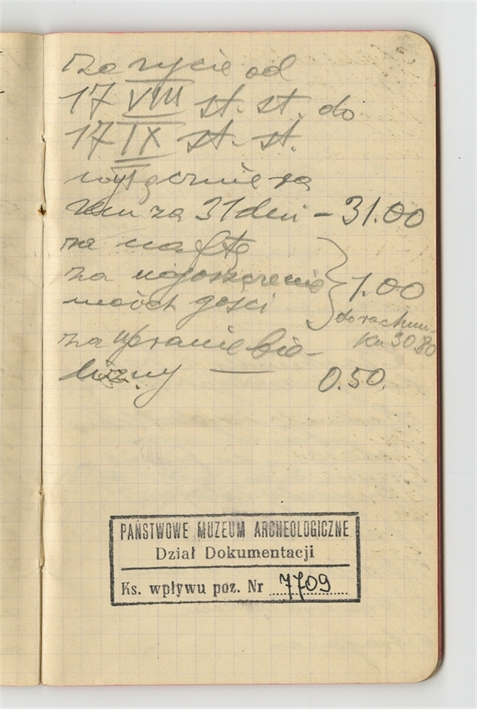 Za życie od
17 VIII st. st. do
17 IX st. st.
wyłącznie za
za 31 dni – 31.00
za naftę
za ugoszczenie
moich gości
1.00
do rachun.
30.80
za upranie bie-
lizny — 0.50.
PAŃSTWOWE MUZEUM ARCHEOLOGICZNE
Dział Dokumentacji
Ks. wpływu poz. Nr 7709